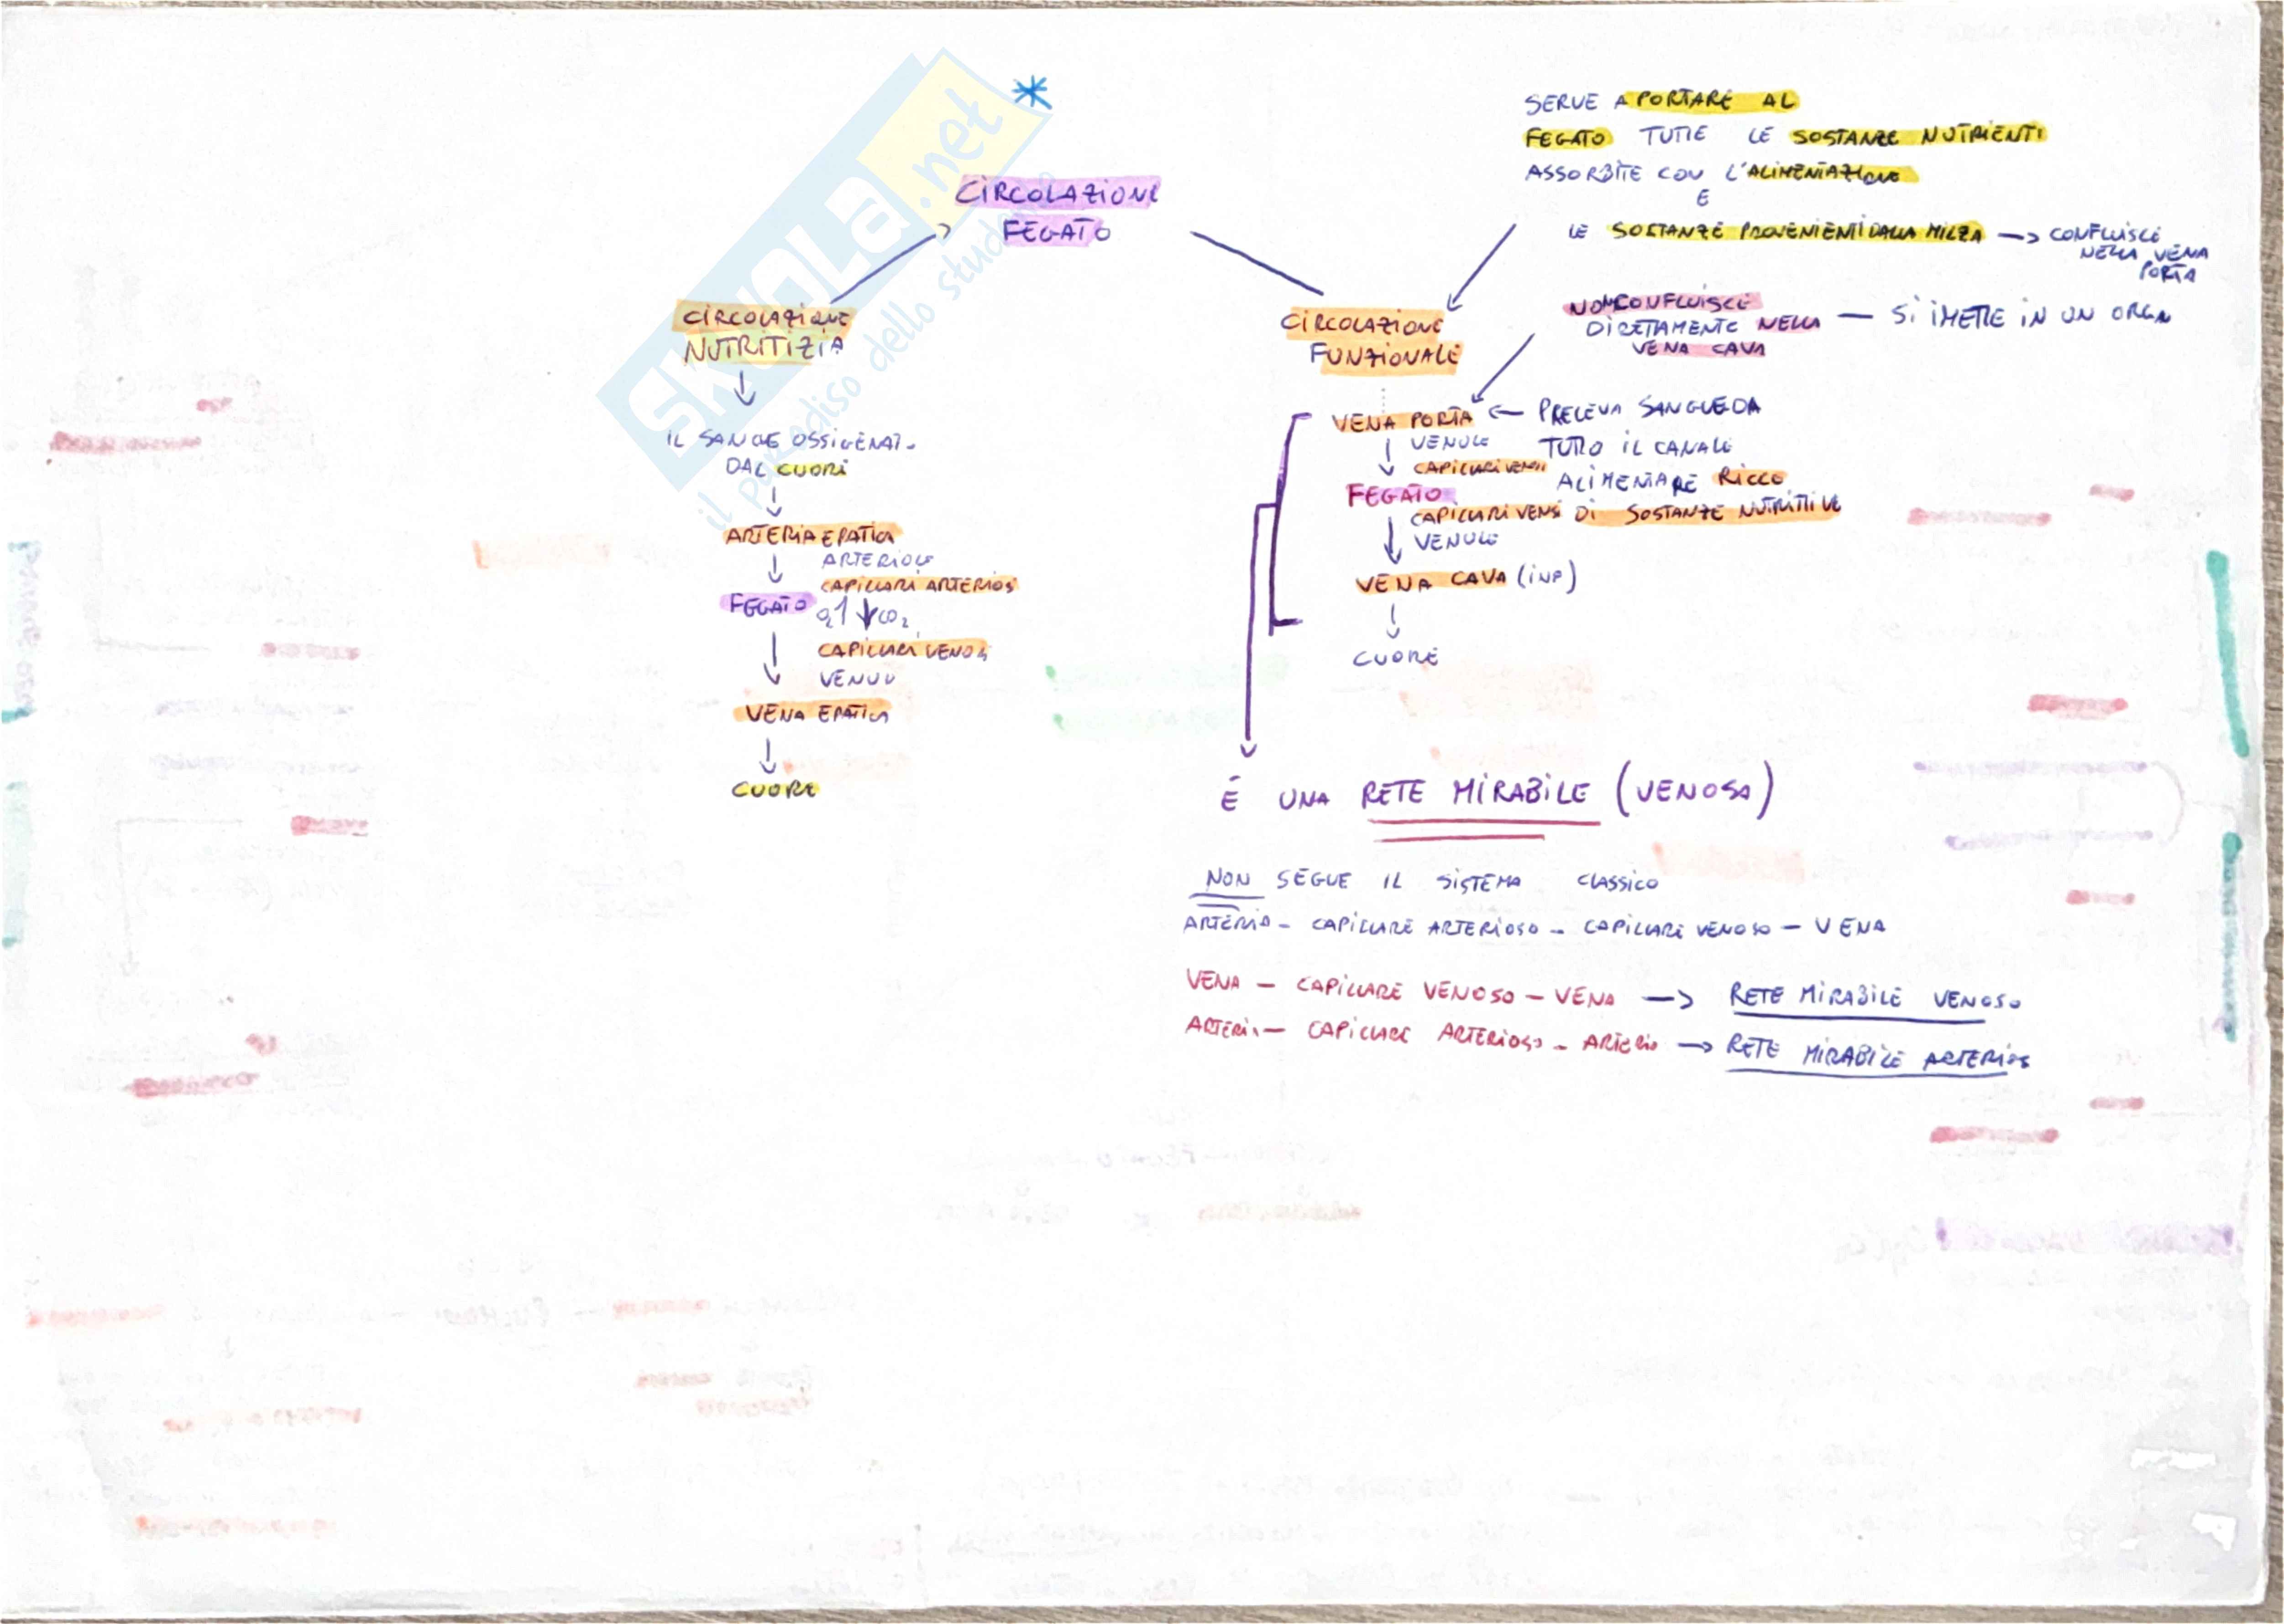 SKUOLA.net
il paradiso dello studente
CIRCOLAZIONE
FEGATO
CIRCOLAZIONE
NUTRITIZIA
IL SANGUE OSSIGENATO
DAL CUORE
ARTERIA EPATICA
ARTERIOLE
CAPILLARI ARTERIOSI
FEGATO O2 CO2
CAPILLARI VENOSI
VENULE
VENA EPATICA
CUORE
SERVE A PORTARE AL
FEGATO TUTTE LE SOSTANZE NUTRIENTI
ASSORBITE CON L'ALIMENTAZIONE
E
LE SOSTANZE PROVENIENTI DALLA MILZA → CONFLUISCE
NELLA VENA
PORTA
CIRCOLAZIONE
FUNZIONALE
NON CONFLUISCE
DIRETTAMENTE NELLA — SI IMETTE IN UN ORGN
VENA CAVA
VENA PORTA ← PRELEVA SANGUE DA
VENULE TUTTO IL CANALE
CAPILLARI VENOSI ALIMENTARE RICCO
FEGATO
CAPILLARI VENSI DI SOSTANZE NUTRITIVE
VENULE
VENA CAVA (INF)
CUORE
È UNA RETE MIRABILE (VENOSA)
NON SEGUE IL SISTEMA CLASSICO
ARTERIA - CAPILLARE ARTERIOSO - CAPILLARE VENOSO - VENA
VENA - CAPILLARE VENOSO - VENA → RETE MIRABILE VENOSO
ARTERIA - CAPILLARE ARTERIOSO - ARTERIA → RETE MIRABILE ARTERIOS